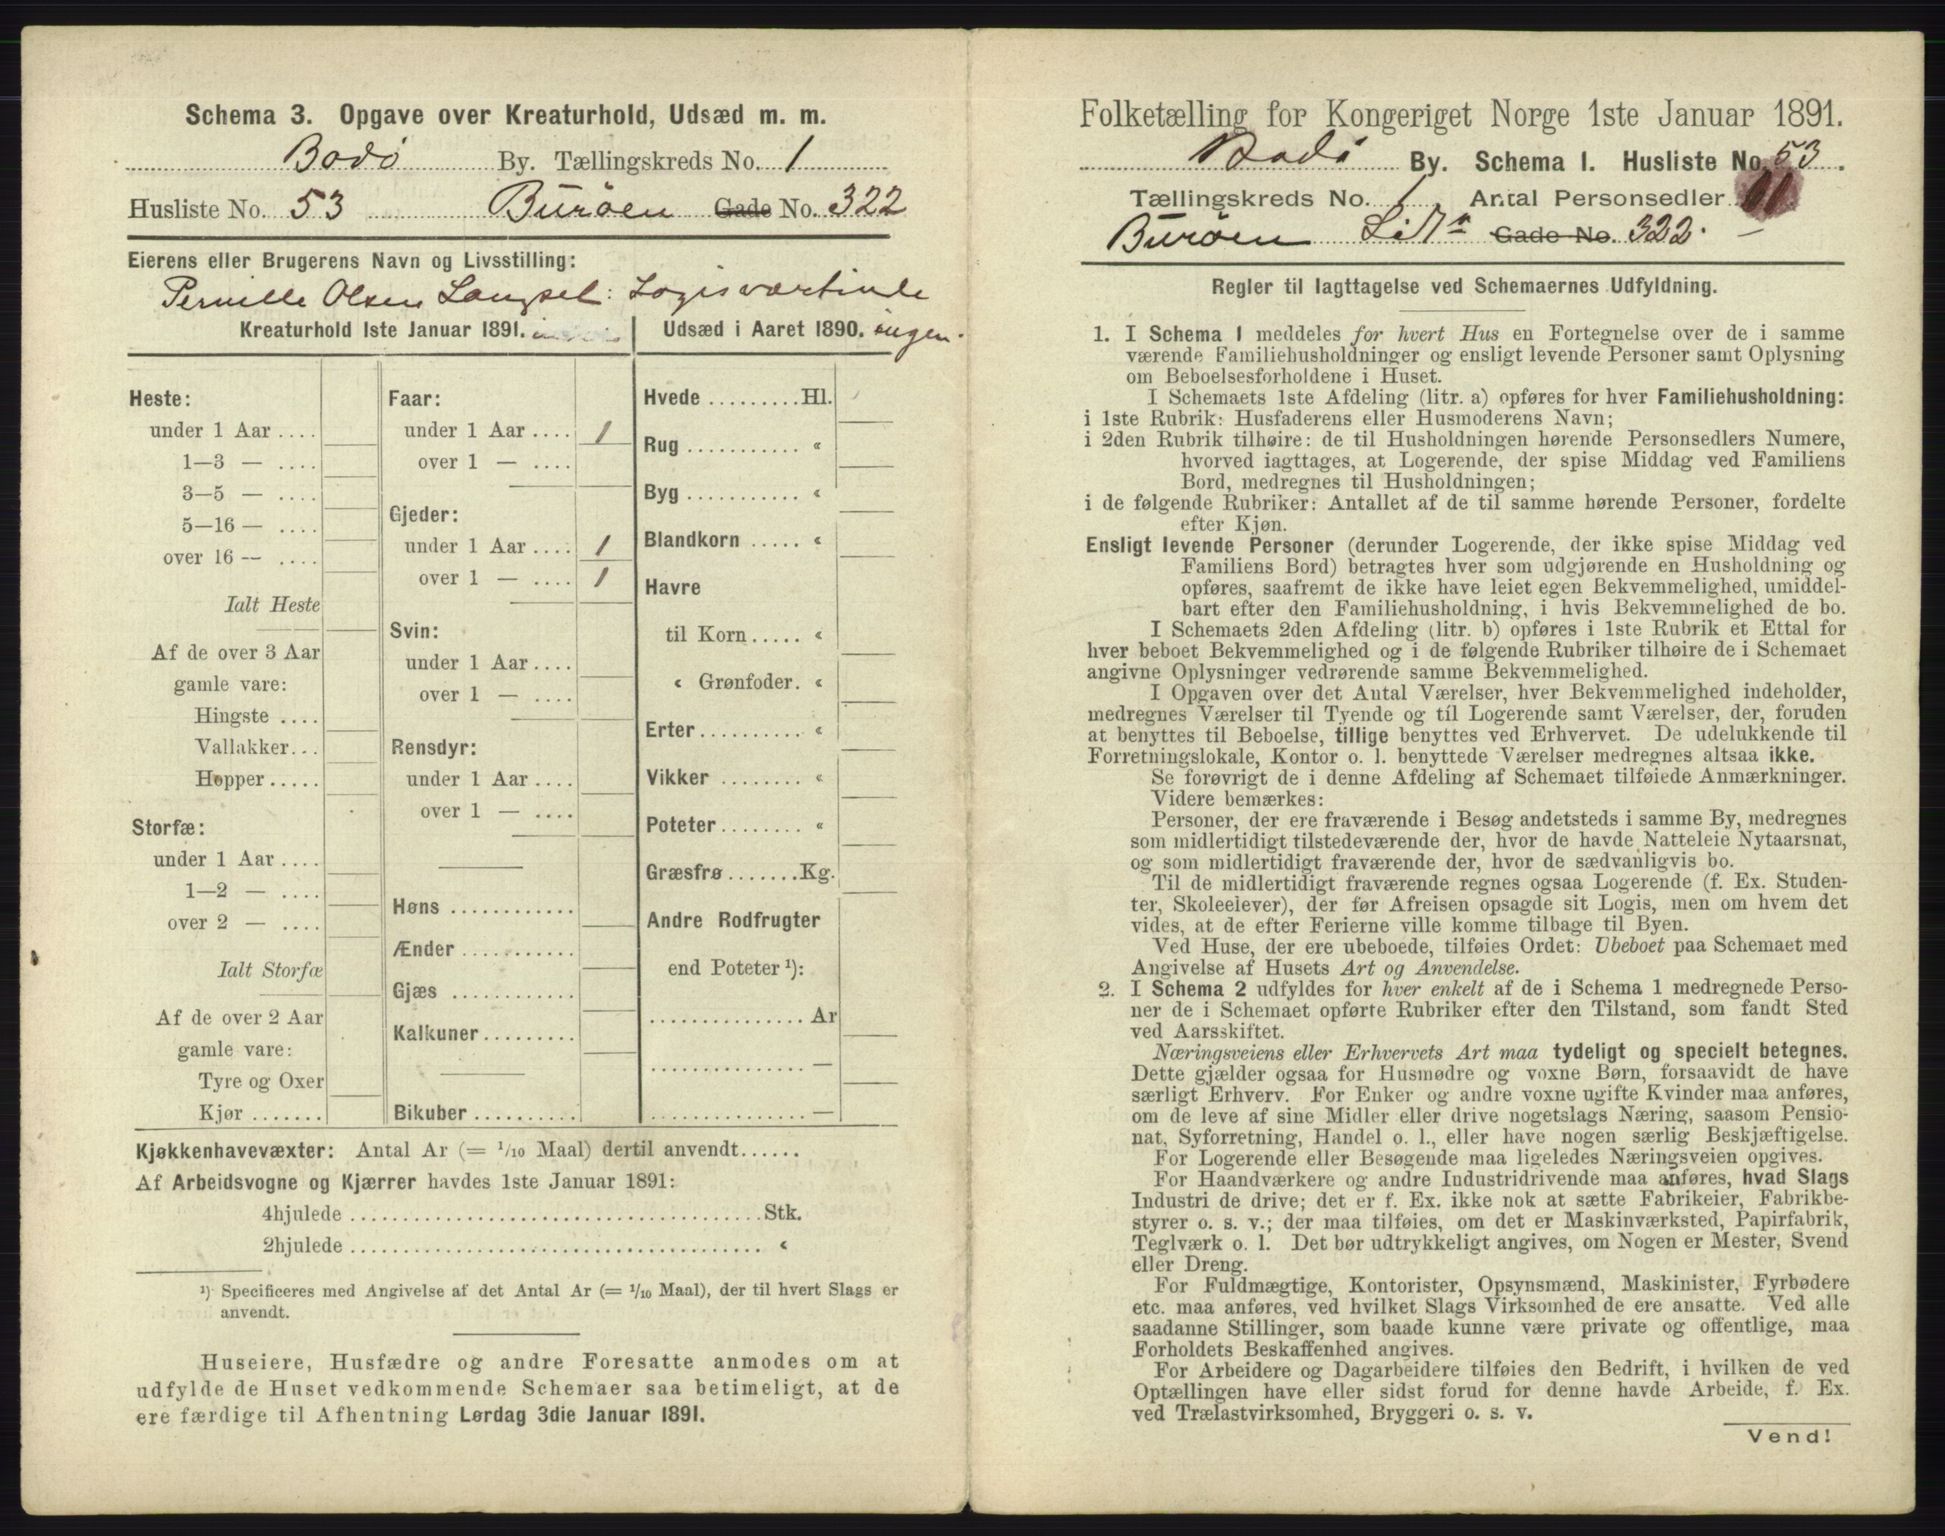 Schema 3. Opgave over Kreaturhold, Udsæd m. m.
Bodø By. Tællingskreds No. 1
Husliste No. 53 Burøen Gade No. 322
Eierens eller Brugerens Navn og Livsstilling:
Pernille Olsen Langset: Logisværtinde
Kreaturhold 1ste Januar 1891.
Udsæd i Aaret 1890. ingen.
Heste:
under 1 Aar ....
1—3 — ....
3—5 — ....
5—16 — ....
over 16 — ....
Ialt Heste
Af de over 3 Aar
gamle vare:
Hingste ....
Vallakker...
Hopper.....
Storfæ:
under 1 Aar ....
1—2 — ....
over 2 — ....
Ialt Storfæ
Af de over 2 Aar
gamle vare:
Tyre og Oxer
Kjør .......
Faar:
under 1 Aar .... 1
over 1 — ....
Gjeder:
under 1 Aar .... 1
over 1 — .... 1
Svin:
under 1 Aar ....
over 1 — ....
Rensdyr:
under 1 Aar ....
over 1 — ....
Høns ............
Ænder ...........
Gjæs ............
Kalkuner .........
Bikuber ..........
Hvede .........Hl.
Rug ........... «
Byg ........... «
Blandkorn ..... «
Havre
til Korn ..... «
« Grønfoder. «
Erter .......... «
Vikker ......... «
Poteter ........ «
Græsfrø .......Kg.
Andre Rodfrugter
end Poteter ¹):
............... Ar
............... —
............... —
Kjøkkenhavevæxter: Antal Ar (= 1/10 Maal) dertil anvendt......
Af Arbeidsvogne og Kjærrer havdes 1ste Januar 1891:
4hjulede ........................................Stk.
2hjulede ........................................ «
¹) Specificeres med Angivelse af det Antal Ar (= 1/10 Maal), der til hvert Slags er
anvendt.
Huseiere, Husfædre og andre Foresatte anmodes om at
udfylde de Huset vedkommende Schemaer saa betimeligt, at de
ere færdige til Afhentning Lørdag 3die Januar 1891.
Folketælling for Kongeriget Norge 1ste Januar 1891.
Bodø By. Schema I. Husliste No. 53.
Tællingskreds No. 1 Antal Personsedler
Burøen Gade No. 322.
Regler til Iagttagelse ved Schemaernes Udfyldning.
1. I Schema 1 meddeles for hvert Hus en Fortegnelse over de i samme
værende Familiehusholdninger og ensligt levende Personer samt Oplysning
om Beboelsesforholdene i Huset.
I Schemaets 1ste Afdeling (litr. a) opføres for hver Familiehusholdning:
i 1ste Rubrik: Husfaderens eller Husmoderens Navn;
i 2den Rubrik tilhøire: de til Husholdningen hørende Personsedlers Numere,
hvorved iagttages, at Logerende, der spise Middag ved Familiens
Bord, medregnes til Husholdningen;
i de følgende Rubriker: Antallet af de til samme hørende Personer, fordelte
efter Kjøn.
Ensligt levende Personer (derunder Logerende, der ikke spise Middag ved
Familiens Bord) betragtes hver som udgjørende en Husholdning og
opføres, saafremt de ikke have leiet egen Bekvemmelighed, umiddel-
bart efter den Familiehusholdning, i hvis Bekvemmelighed de bo.
I Schemaets 2den Afdeling (litr. b) opføres i 1ste Rubrik et Ettal for
hver beboet Bekvemmelighed og i de følgende Rubriker tilhøire de i Schemaet
angivne Oplysninger vedrørende samme Bekvemmelighed.
I Opgaven over det Antal Værelser, hver Bekvemmelighed indeholder,
medregnes Værelser til Tyende og til Logerende samt Værelser, der, foruden
at benyttes til Beboelse, tillige benyttes ved Erhvervet. De udelukkende til
Forretningslokale, Kontor o. l. benyttede Værelser medregnes altsaa ikke.
Se forøvrigt de i denne Afdeling af Schemaet tilføiede Anmærkninger.
Videre bemærkes:
Personer, der ere fraværende i Besøg andetsteds i samme By, medregnes
som midlertidigt tilstedeværende der, hvor de havde Natteleie Nytaarsnat,
og som midlertidigt fraværende der, hvor de sædvanligvis bo.
Til de midlertidigt fraværende regnes ogsaa Logerende (f. Ex. Studen-
ter, Skoleelever), der før Afreisen opsagde sit Logis, men om hvem det
vides, at de efter Ferierne ville komme tilbage til Byen.
Ved Huse, der ere ubeboede, tilføies Ordet: Ubeboet paa Schemaet med
Angivelse af Husets Art og Anvendelse.
2. I Schema 2 udfyldes for hver enkelt af de i Schema 1 medregnede Perso-
ner de i Schemaet opførte Rubriker efter den Tilstand, som fandt Sted
ved Aarsskiftet.
Næringsveiens eller Erhvervets Art maa tydeligt og specielt betegnes.
Dette gjælder ogsaa for Husmødre og voxne Børn, forsaavidt de have
særligt Erhverv. For Enker og andre voxne ugifte Kvinder maa anføres,
om de leve af sine Midler eller drive nogetslags Næring, saasom Pensio-
nat, Syforretning, Handel o. l., eller have nogen særlig Beskjæftigelse.
For Logerende eller Besøgende maa ligeledes Næringsveien opgives.
For Haandværkere og andre Industridrivende maa anføres, hvad Slags
Industri de drive; det er f. Ex. ikke nok at sætte Fabrikeier, Fabrikbe-
styrer o. s. v.; der maa tilføies, om det er Maskinværksted, Papirfabrik,
Teglværk o. l. Det bør udtrykkeligt angives, om Nogen er Mester, Svend
eller Dreng.
For Fuldmægtige, Kontorister, Opsynsmænd, Maskinister, Fyrbødere
etc. maa anføres, ved hvilket Slags Virksomhed de ere ansatte. Ved alle
saadanne Stillinger, som baade kunne være private og offentlige, maa
Forholdets Beskaffenhed angives.
For Arbeidere og Dagarbeidere tilføies den Bedrift, i hvilken de ved
Optællingen have eller sidst forud for denne havde Arbeide, f. Ex.
ved Trælastvirksomhed, Bryggeri o. s. v.
Vend!